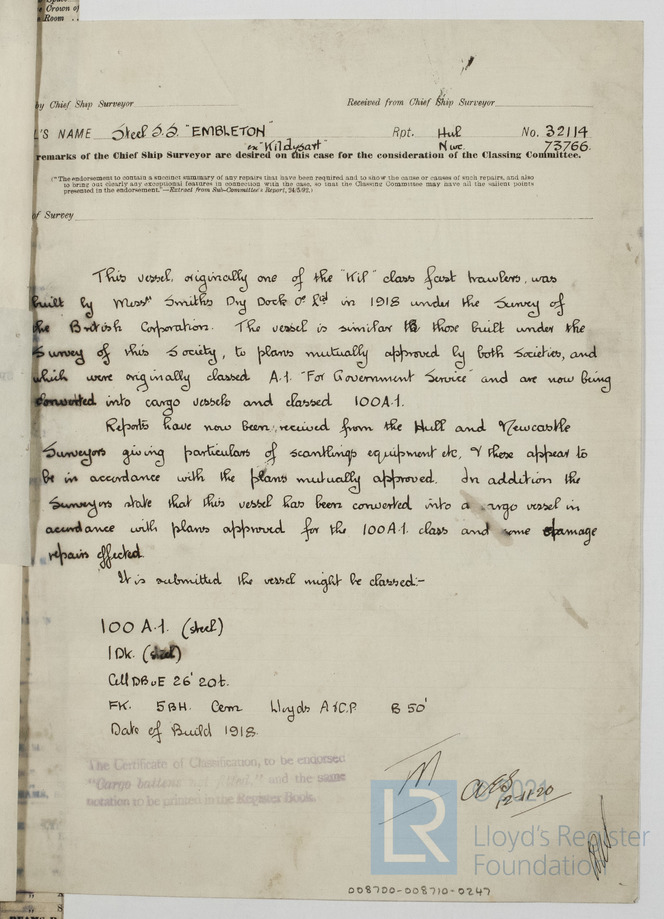 Crown of
Room
by Chief Ship Surveyor
Received from Chief Ship Surveyor
L'S NAME Steel S.S. "EMBLETON" Rpt. Hul No. 32114
ex "Kildysart" Nwc. 73766.
remarks of the Chief Ship Surveyor are desired on this case for the consideration of the Classing Committee.
("The endorsement to contain a succinct summary of any repairs that have been required and to show the cause or causes of such repairs, and also
to bring out clearly any exceptional features in connection with the case, so that the Classing Committee may have all the salient points
presented in the endorsement."—Extract from Sub-Committee's Report, 24/5/92.)
of Survey
This vessel, originally one of the "Kil" class fast trawlers, was
built by Messrs Smiths Dry Dock Co Ltd in 1918 under the Survey of
the British Corporation. The vessel is similar to those built under the
Survey of this Society, to plans mutually approved by both Societies, and
which were originally classed A.1. "For Government Service" and are now being
converted into cargo vessels and classed 100A.1.
Reports have now been received from the Hull and Newcastle
Surveyors giving particulars of scantlings equipment etc, & these appear to
be in accordance with the plans mutually approved. In addition the
Surveyors state that this vessel has been converted into a cargo vessel in
accordance with plans approved for the 100A.1. class and some damage
repairs effected.
It is submitted the vessel might be classed:-
100 A.1. (steel)
1Dk. (steel)
CellDBuE 26' 20t.
FK. 5BH. Cem Lloyds A&CP B 50'
Date of Build 1918.
The Certificate of Classification, to be endorsed
"Cargo battens not fitted." and the same
notation to be printed in the Register Book.
12-11-20
© 2021
LR
Lloyd's Register
Foundation
008700-008710-0247